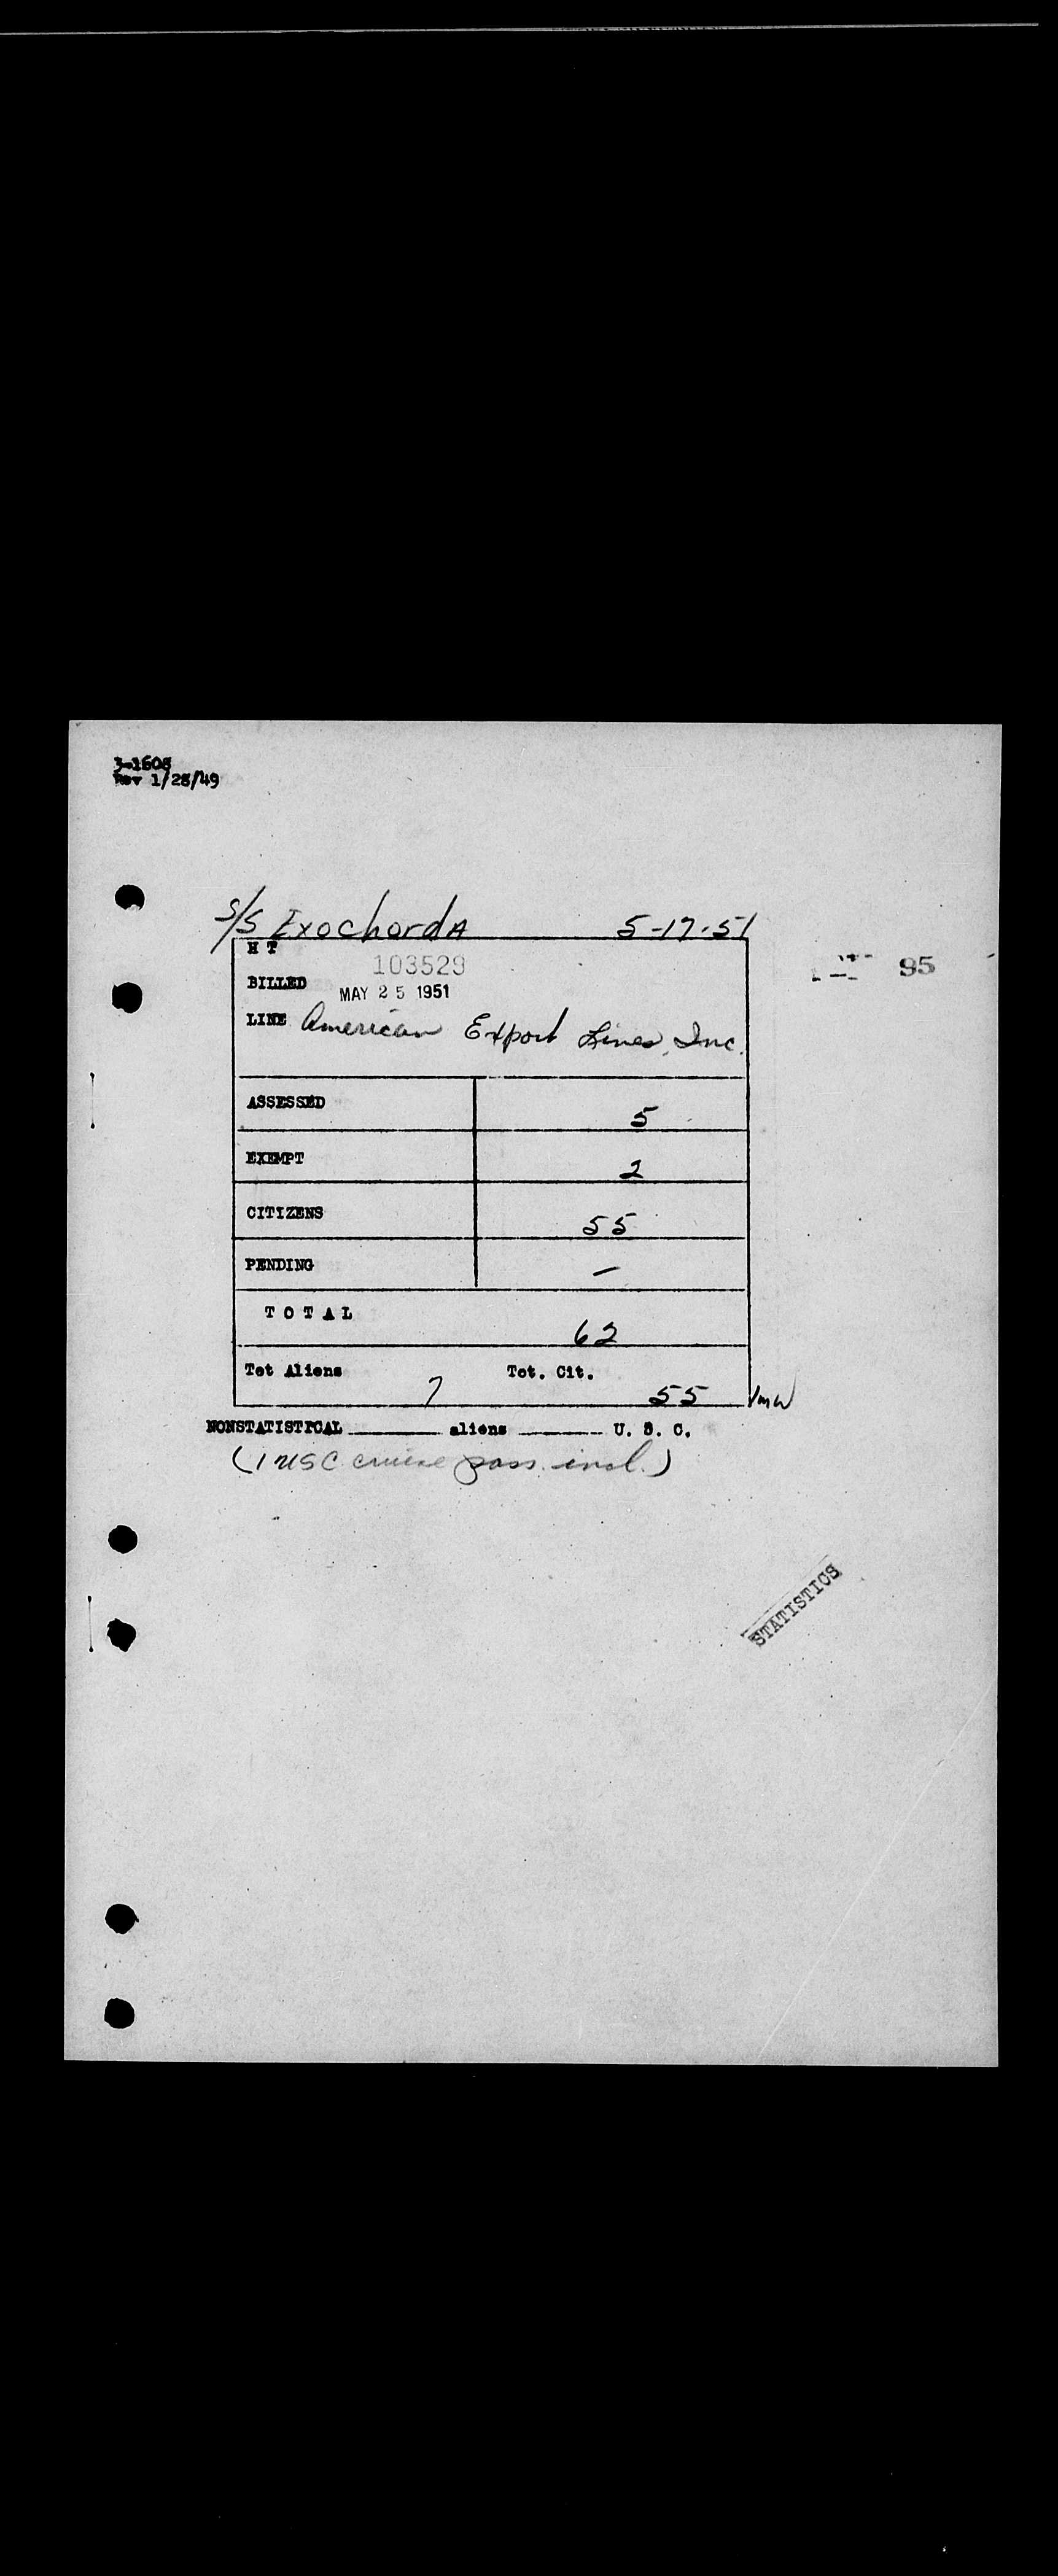 3-1608
Rev 1/28/49
S/S ExochordA 5-17-51
H T
103529
95
BILLED MAY 25 1951
LINE American Export Lines, Inc.
ASSESSED 5
EXEMPT 2
CITIZENS 55
PENDING —
T O T A L 62
Tot Aliens 7 Tot. Cit. 55
NONSTATISTICAL ________ aliens ________ U. S. C.
(1 USC cruise pass. incl.)
STATISTICS